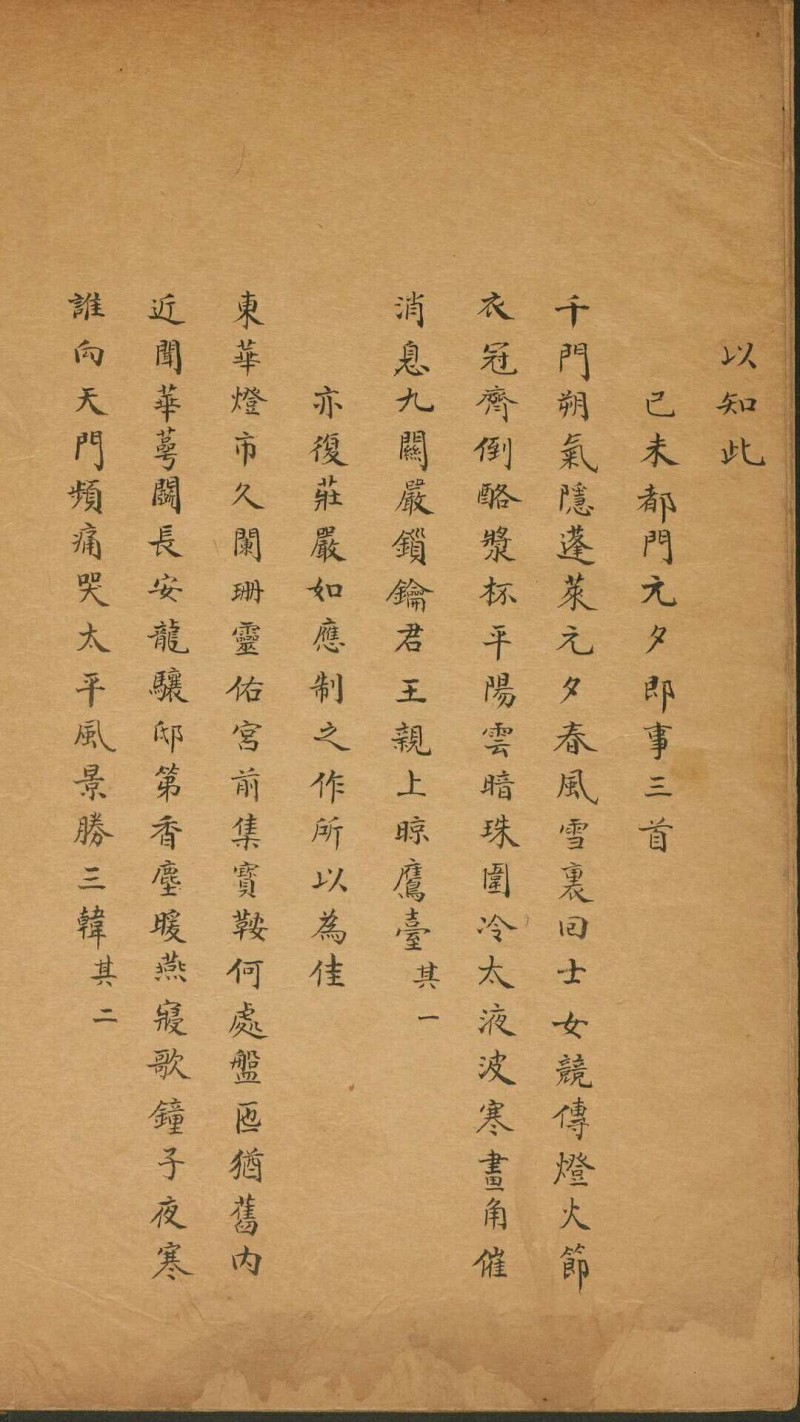 以知此
己未都門元夕即事三首
千門朔氣隱蓬萊元夕春風雪裏回士女競傳燈火節
衣冠齊倒酪漿杯平陽雲暗珠圍冷太液波寒畫角催
消息九關嚴鎖鑰君王親上晾鷹臺其一
亦復莊嚴如應制之作所以為佳
東華燈市久闌珊靈佑宮前集寶鞍何處盤匜猶舊内
近聞華蕚闘長安龍驤邸第香塵暖燕寢歌鐘子夜寒
誰向天門頻痛哭太平風景勝三韓其二